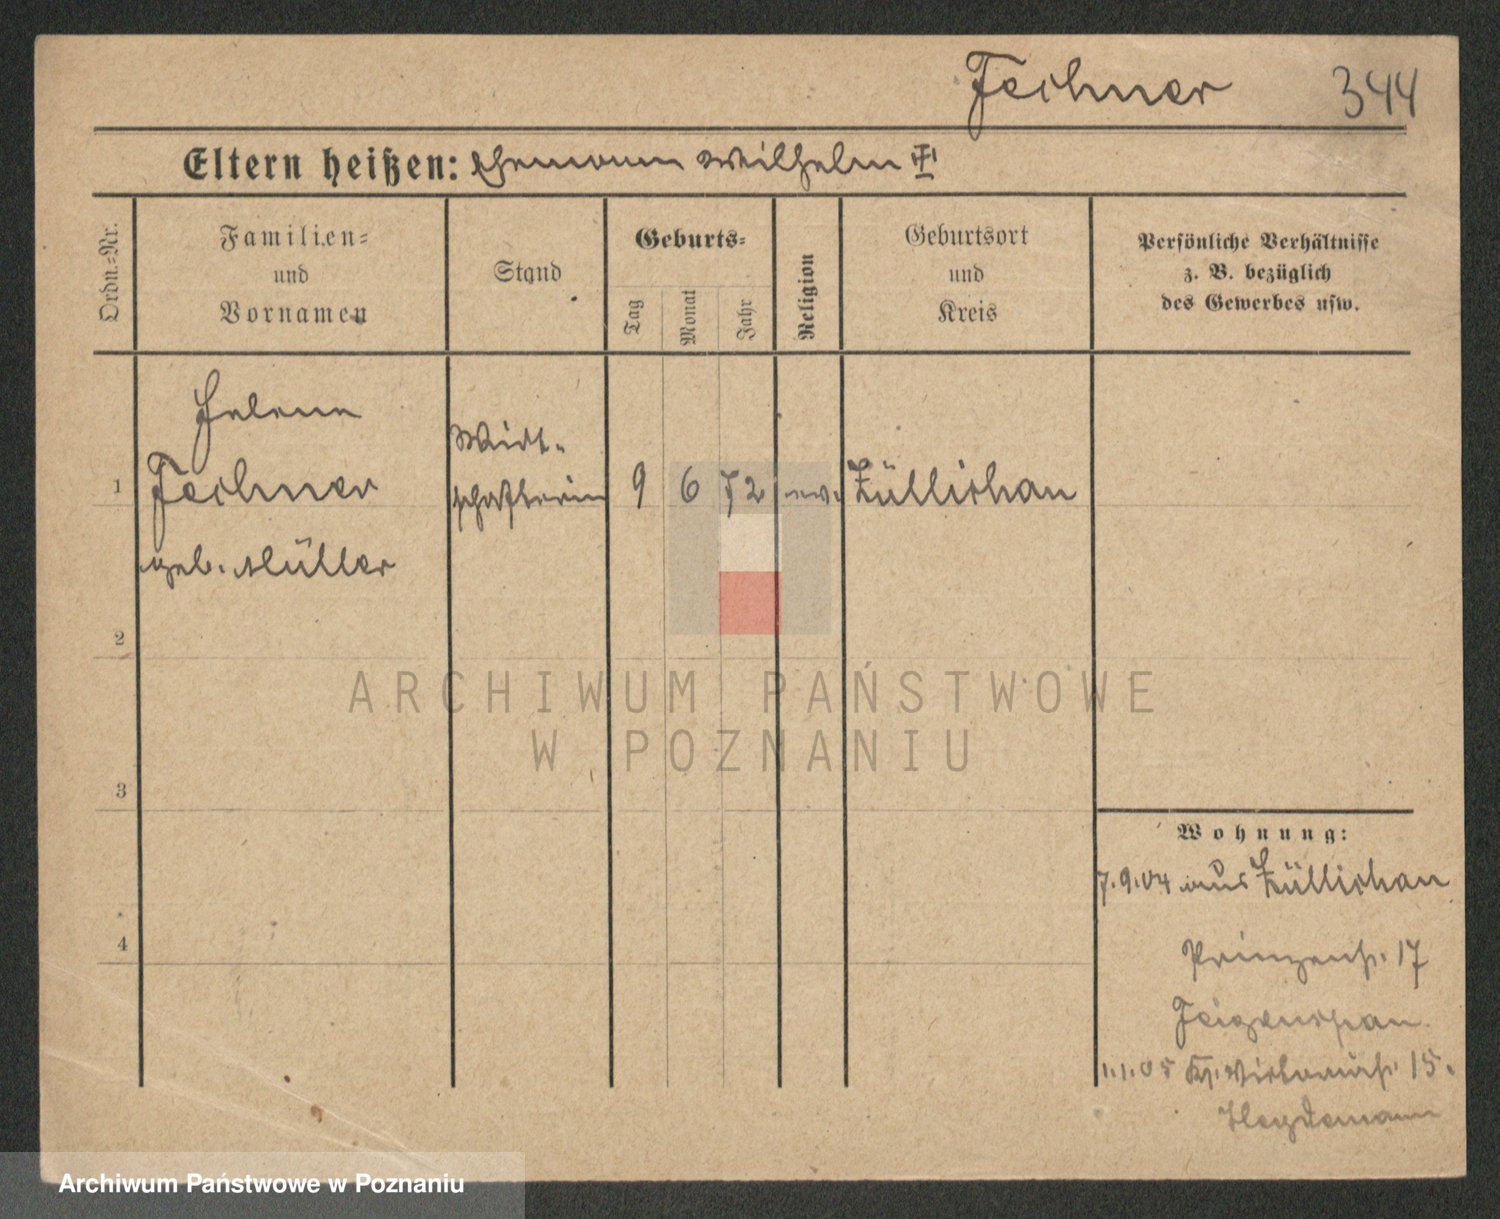 Fechner 344
Eltern heißen: Ehemann Wilhelm
Ordn.-Nr.
Familien-
und
Vornamen
Stand
Geburts-
Tag
Monat
Jahr
Religion
Geburtsort
und
Kreis
Persönliche Verhältnisse
z. B. bezüglich
des Gewerbes usw.
1
Helene
Fechner
geb. Müller
Wirt-
schafterin
9 6 72 ev. Züllichau
2
3
4
Wohnung:
7.9.04 aus Züllichau
Prinzenstr. 17
1.1.05 15.
Heydemann
ARCHIWUM PAŃSTWOWE
W POZNANIU
Archiwum Państwowe w Poznaniu